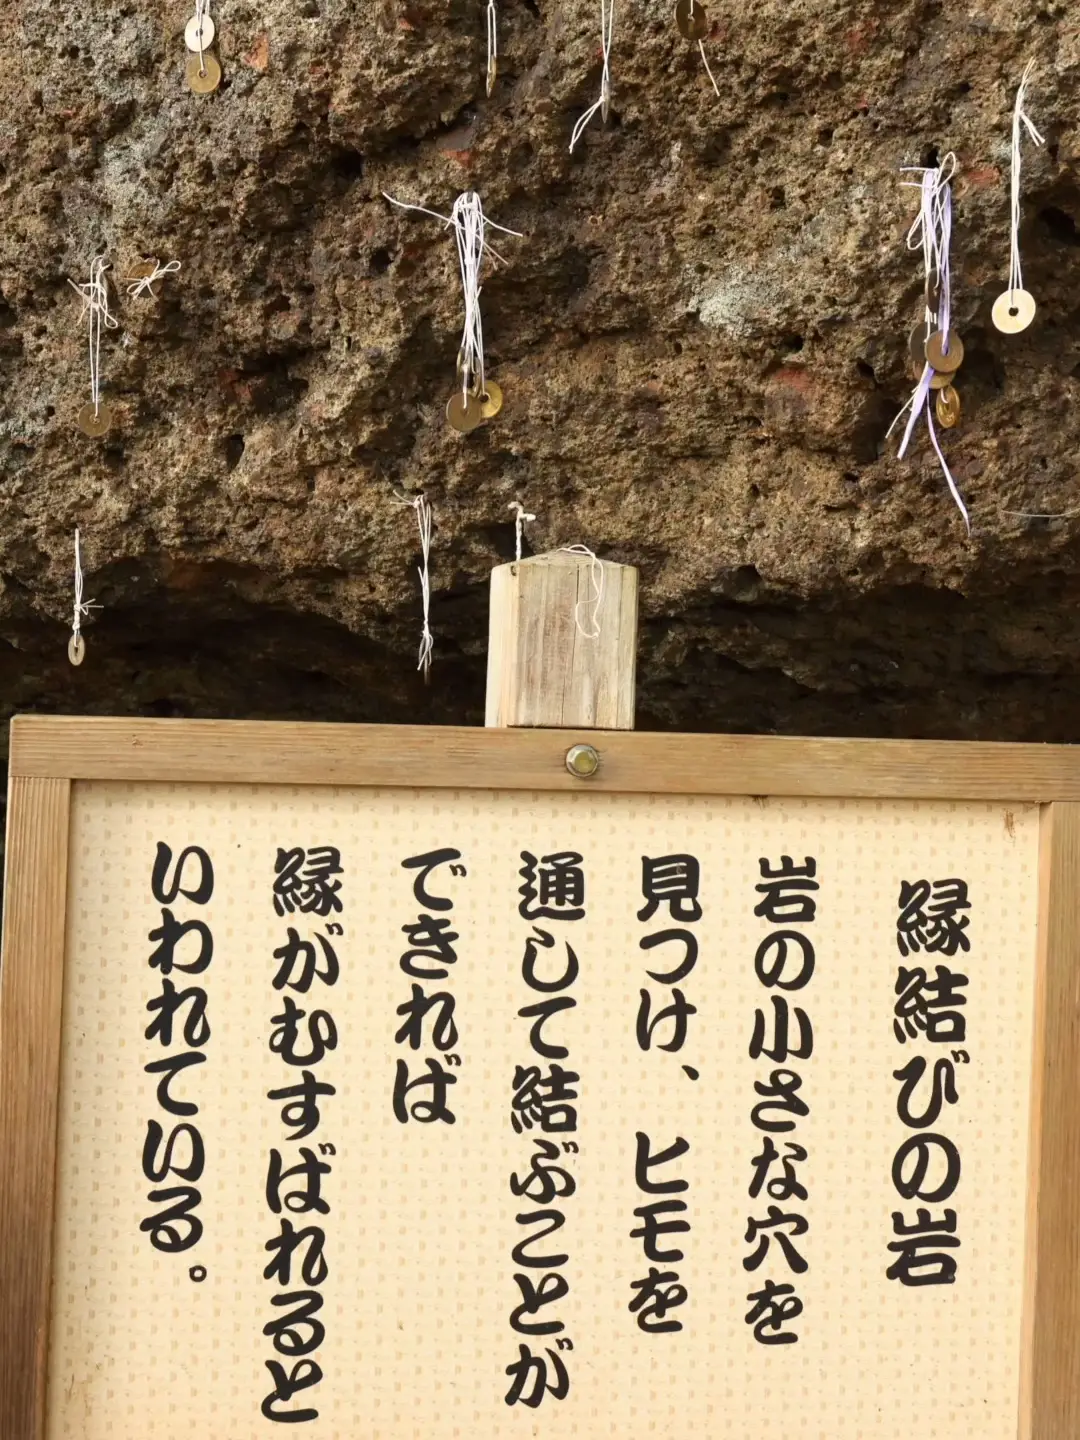 縁結びの岩
岩の小さな穴を
見つけ、ヒモを
通して結ぶことが
できれば
縁がむすばれると
いわれている。